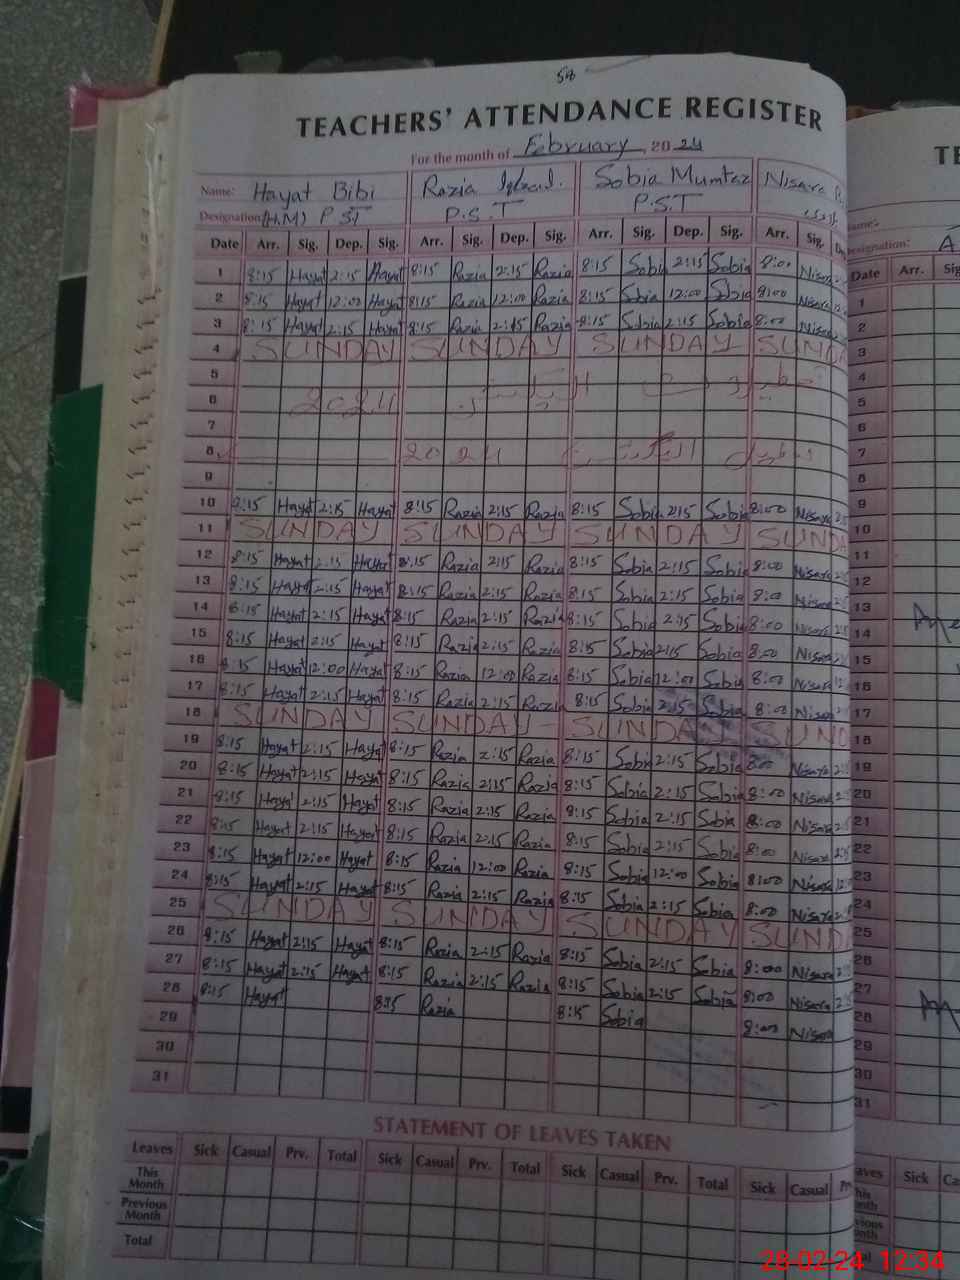 58
TEACHERS' ATTENDANCE REGISTER
For the month of February, 2024
Name: Hayat Bibi Razia Iqbal. Sobia Mumtaz Nisara
Designation: (H.M) P ST P.S.T P.S.T
Date Arr. Sig. Dep. Sig. Arr. Sig. Dep. Sig. Arr. Sig. Dep. Sig. Arr. Sig.
1 8:15 Hayat 2:15 Hayat 8:15 Razia 2:15 Razia 8:15 Sobia 2:15 Sobia 8:00 Nisara
2 8:15 Hayat 12:00 Hayat 8:15 Razia 12:00 Razia 8:15 Sobia 12:00 Sobia 8:00 Nisara
3 8:15 Hayat 2:15 Hayat 8:15 Razia 2:15 Razia 8:15 Sobia 2:15 Sobia 8:00 Nisara
4 SUNDAY SUNDAY SUNDAY SUNDA
5
6 2024
7
8 2024
9
10 8:15 Hayat 2:15 Hayat 8:15 Razia 2:15 Razia 8:15 Sobia 2:15 Sobia 8:00 Nisara
11 SUNDAY SUNDAY SUNDAY SUNDA
12 8:15 Hayat 2:15 Hayat 8:15 Razia 2:15 Razia 8:15 Sobia 2:15 Sobia 8:00 Nisara
13 8:15 Hayat 2:15 Hayat 8:15 Razia 2:15 Razia 8:15 Sobia 2:15 Sobia 8:00 Nisara
14 8:15 Hayat 2:15 Hayat 8:15 Razia 2:15 Razia 8:15 Sobia 2:15 Sobia 8:00 Nisara
15 8:15 Hayat 2:15 Hayat 8:15 Razia 2:15 Razia 8:15 Sobia 2:15 Sobia 8:00 Nisara
16 8:15 Hayat 12:00 Hayat 8:15 Razia 12:00 Razia 8:15 Sobia 12:00 Sobia 8:00 Nisara
17 8:15 Hayat 2:15 Hayat 8:15 Razia 2:15 Razia 8:15 Sobia 2:15 Sobia 8:00 Nisara
18 SUNDAY SUNDAY SUNDAY SUND
19 8:15 Hayat 2:15 Hayat 8:15 Razia 2:15 Razia 8:15 Sobia 2:15 Sobia 8:00 Nisara
20 8:15 Hayat 2:15 Hayat 8:15 Razia 2:15 Razia 8:15 Sobia 2:15 Sobia 8:00 Nisara
21 8:15 Hayat 2:15 Hayat 8:15 Razia 2:15 Razia 8:15 Sobia 2:15 Sobia 8:00 Nisara
22 8:15 Hayat 2:15 Hayat 8:15 Razia 2:15 Razia 8:15 Sobia 2:15 Sobia 8:00 Nisara
23 8:15 Hayat 12:00 Hayat 8:15 Razia 12:00 Razia 8:15 Sobia 12:00 Sobia 8:00 Nisara
24 8:15 Hayat 2:15 Hayat 8:15 Razia 2:15 Razia 8:15 Sobia 2:15 Sobia 8:00 Nisara
25 SUNDAY SUNDAY SUNDAY SUND
26 8:15 Hayat 2:15 Hayat 8:15 Razia 2:15 Razia 8:15 Sobia 2:15 Sobia 8:00 Nisara
27 8:15 Hayat 2:15 Hayat 8:15 Razia 2:15 Razia 8:15 Sobia 2:15 Sobia 8:00 Nisara
28 8:15 Hayat 8:15 Razia 8:15 Sobia 8:00 Nisara
29
30
31
STATEMENT OF LEAVES TAKEN
Leaves Sick Casual Prv. Total Sick Casual Prv. Total Sick Casual Prv. Total Sick Casual
This Month
Previous Month
Total
TE
Name:
Designation: A
Date Arr. Sig
1
2
3
4
5
6
7
8
9
10
11
12
13
14
15
16
17
18
19
20
21
22
23
24
25
26
27
28
29
30
31
Sick
28-02-24 12:34